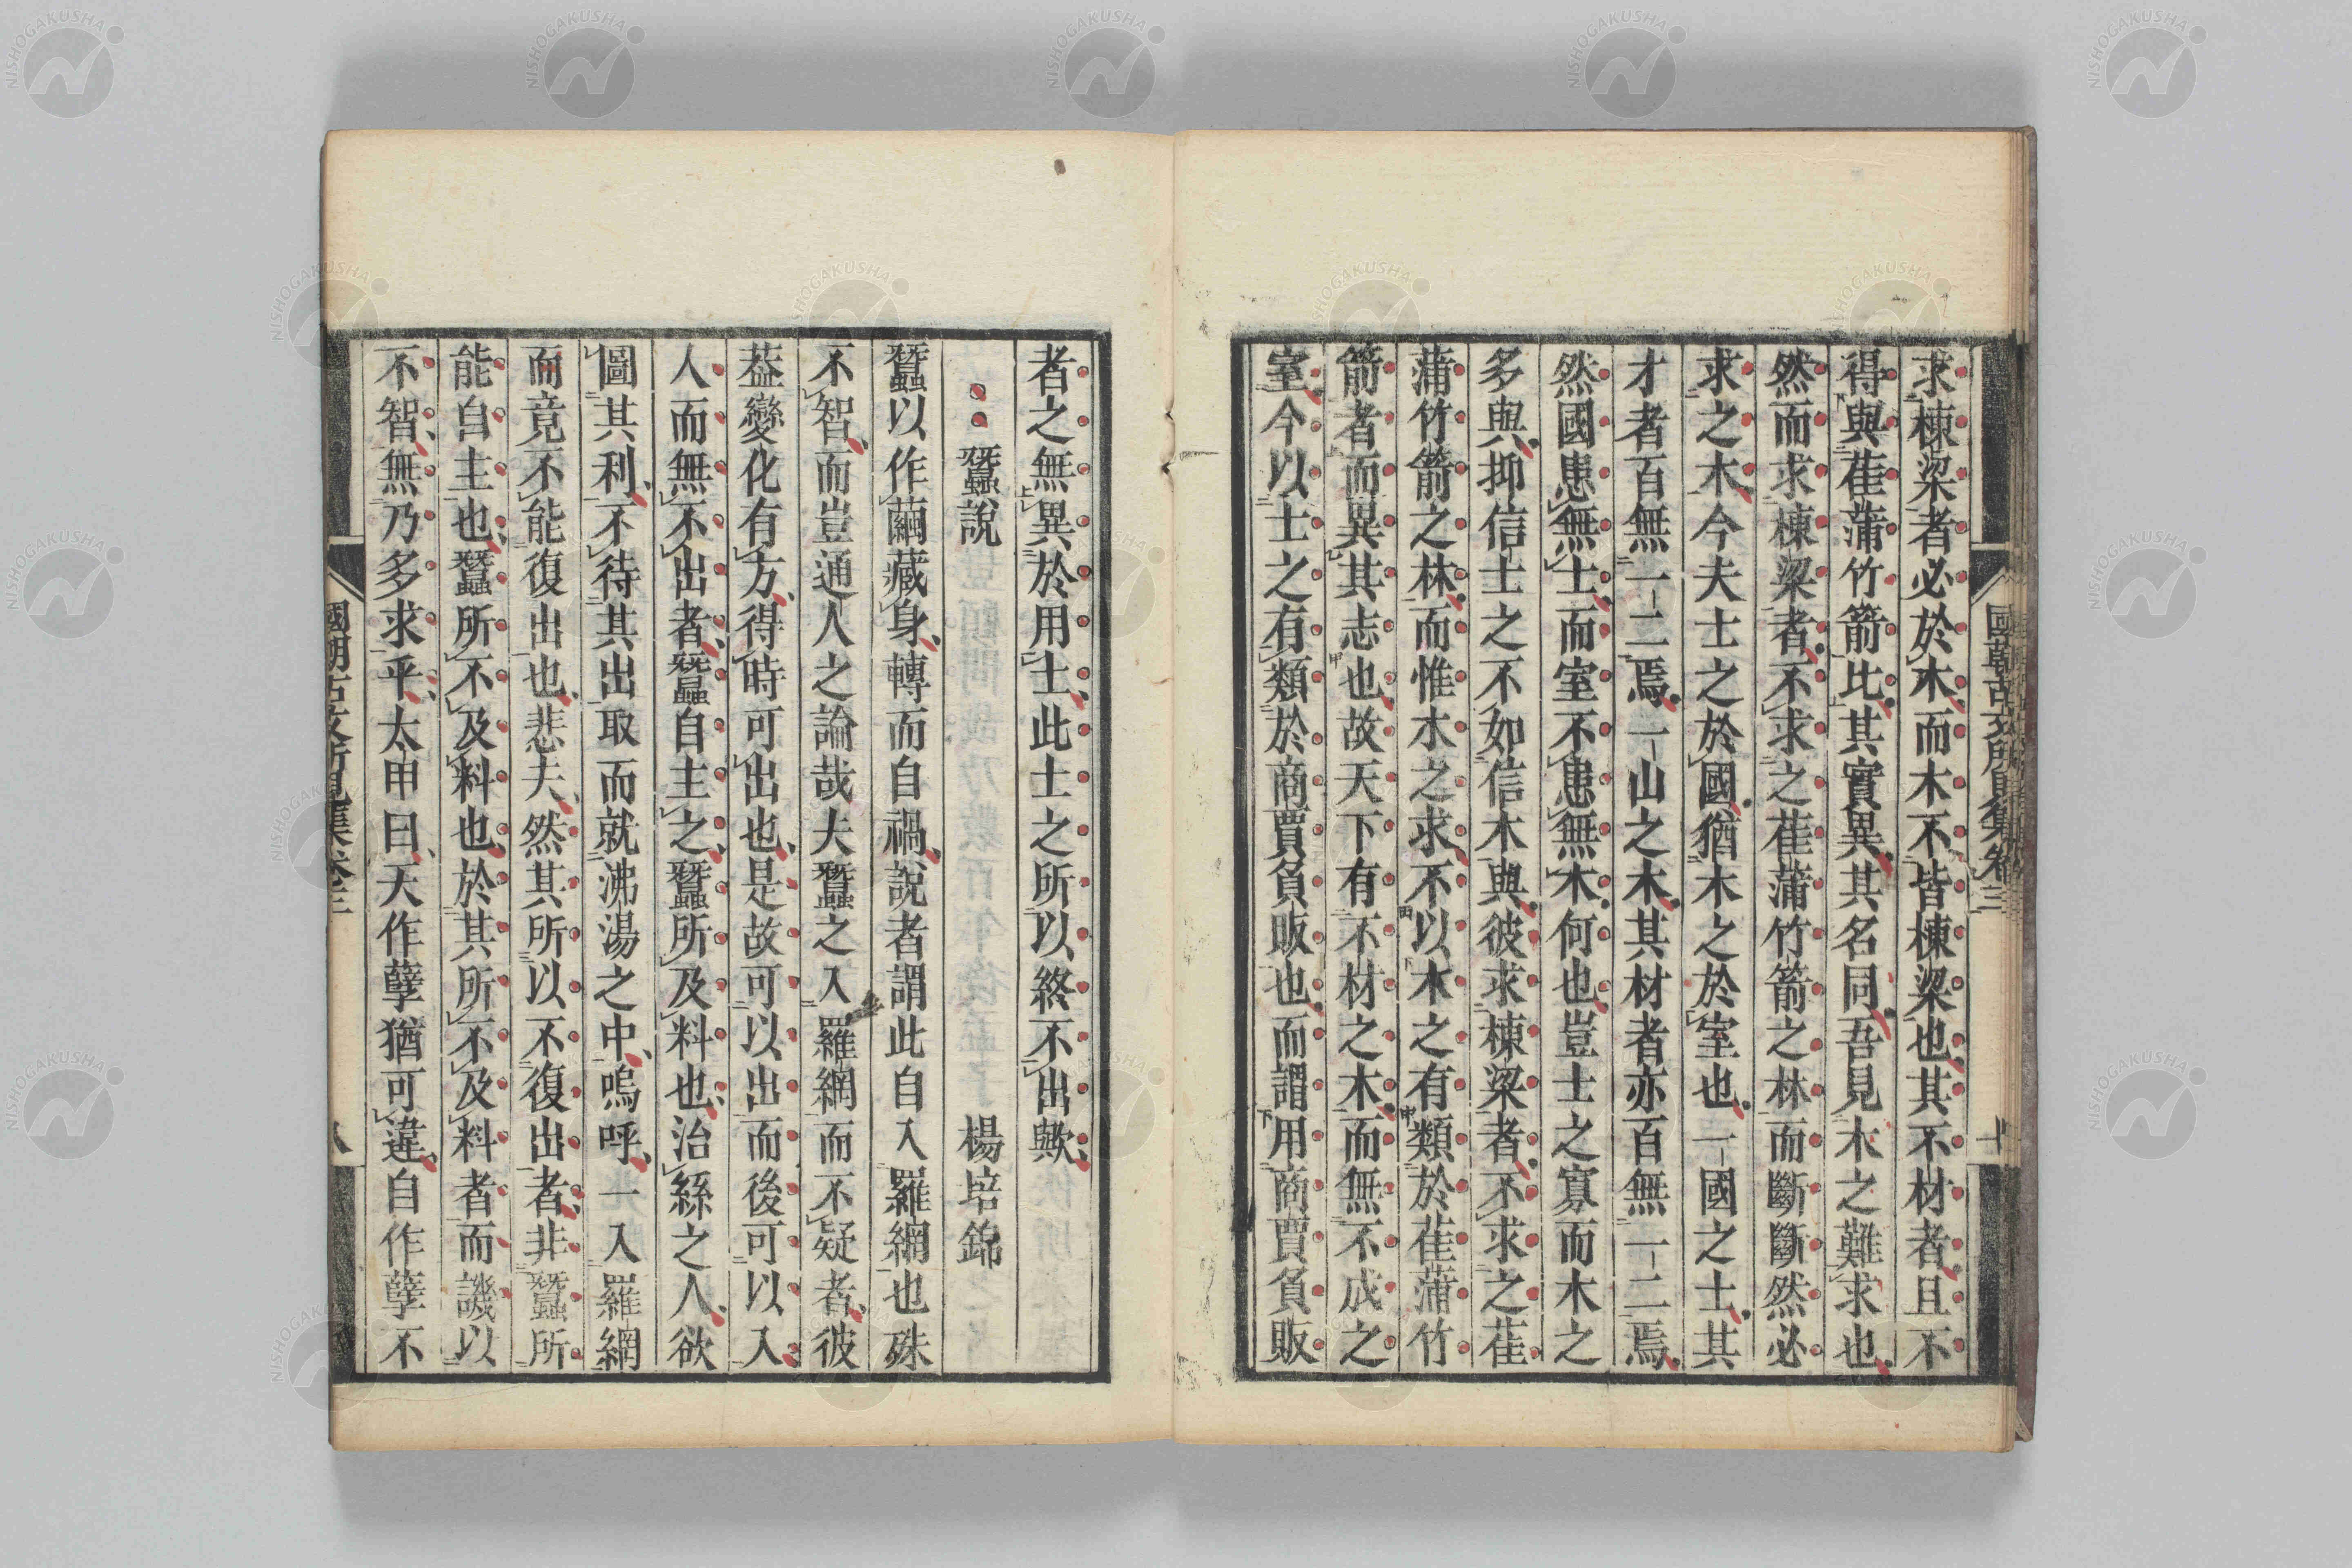 國朝古文所見集卷三
求棟梁者必於木而木不皆棟梁也其不材者且不
得與萑蒲竹箭比其實異其名同吾見木之難求也
然而求棟梁者不求之萑蒲竹箭之林而斷斷然必
求之木今夫士之於國猶木之於室也一國之士其
才者百無一二焉一山之木其材者亦百無一二焉
然國患無士而室不患無木何也豈士之寡而木之
多與抑信士之不如信木與彼求棟梁者不求之萑
蒲竹箭之林而惟木之求不以木之有類於萑蒲竹
箭者而異其志也故天下有不材之木而無不成之
室今以士之有類於商賈負販也而謂用商賈負販
者之無異於用士此士之所以終不出歟
蠶說 楊培錦
蠶以作繭藏身轉而自禍說者謂此自入羅網也殊
不智而豈通人之論哉夫蠶之入羅網而不疑者彼
葢變化有方得時可出也是故可以出而後可以入
人而無不出者蠶自主之蠶所及料也治絲之人欲
圖其利不待其出取而就沸湯之中嗚呼一入羅網
而竟不能復出也悲夫然其所以不復出者非蠶所
能自主也蠶所不及料也於其所不及料者而譏以
不智無乃多求乎太甲曰天作孽猶可違自作孽不
國朝古文所見集卷三
八
NISHOGAKUSHA